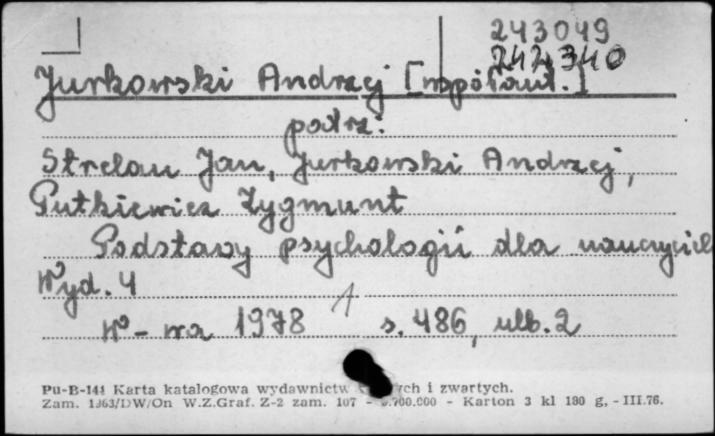 243049
242340
Jurkowski Andrzej [współaut.]
patrz:
Strelau Jan, Jurkowski Andrzej,
Putkiewicz Zygmunt
Podstawy psychologii dla nauczyciel
Wyd. 4
W-wa 1978 1 s. 486, ulb. 2
Pu-B-141 Karta katalogowa wydawnictw ych i zwartych.
Zam. 1363/DW/On W.Z.Graf. Z-2 zam. 107 - .700.000 - Karton 3 kl 180 g, - III.76.